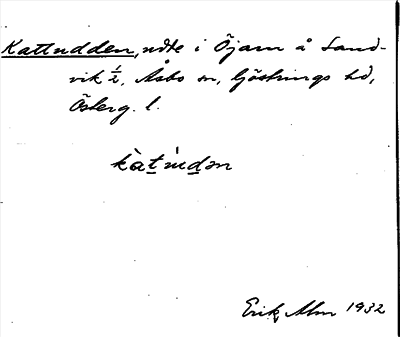 Kattudden, udde i Öjarn å Sand-
vik ½, Åsbo sn, Göstrings hd,
Österg. l.
kàt̲ùd̲ən
Erik Alm 1932